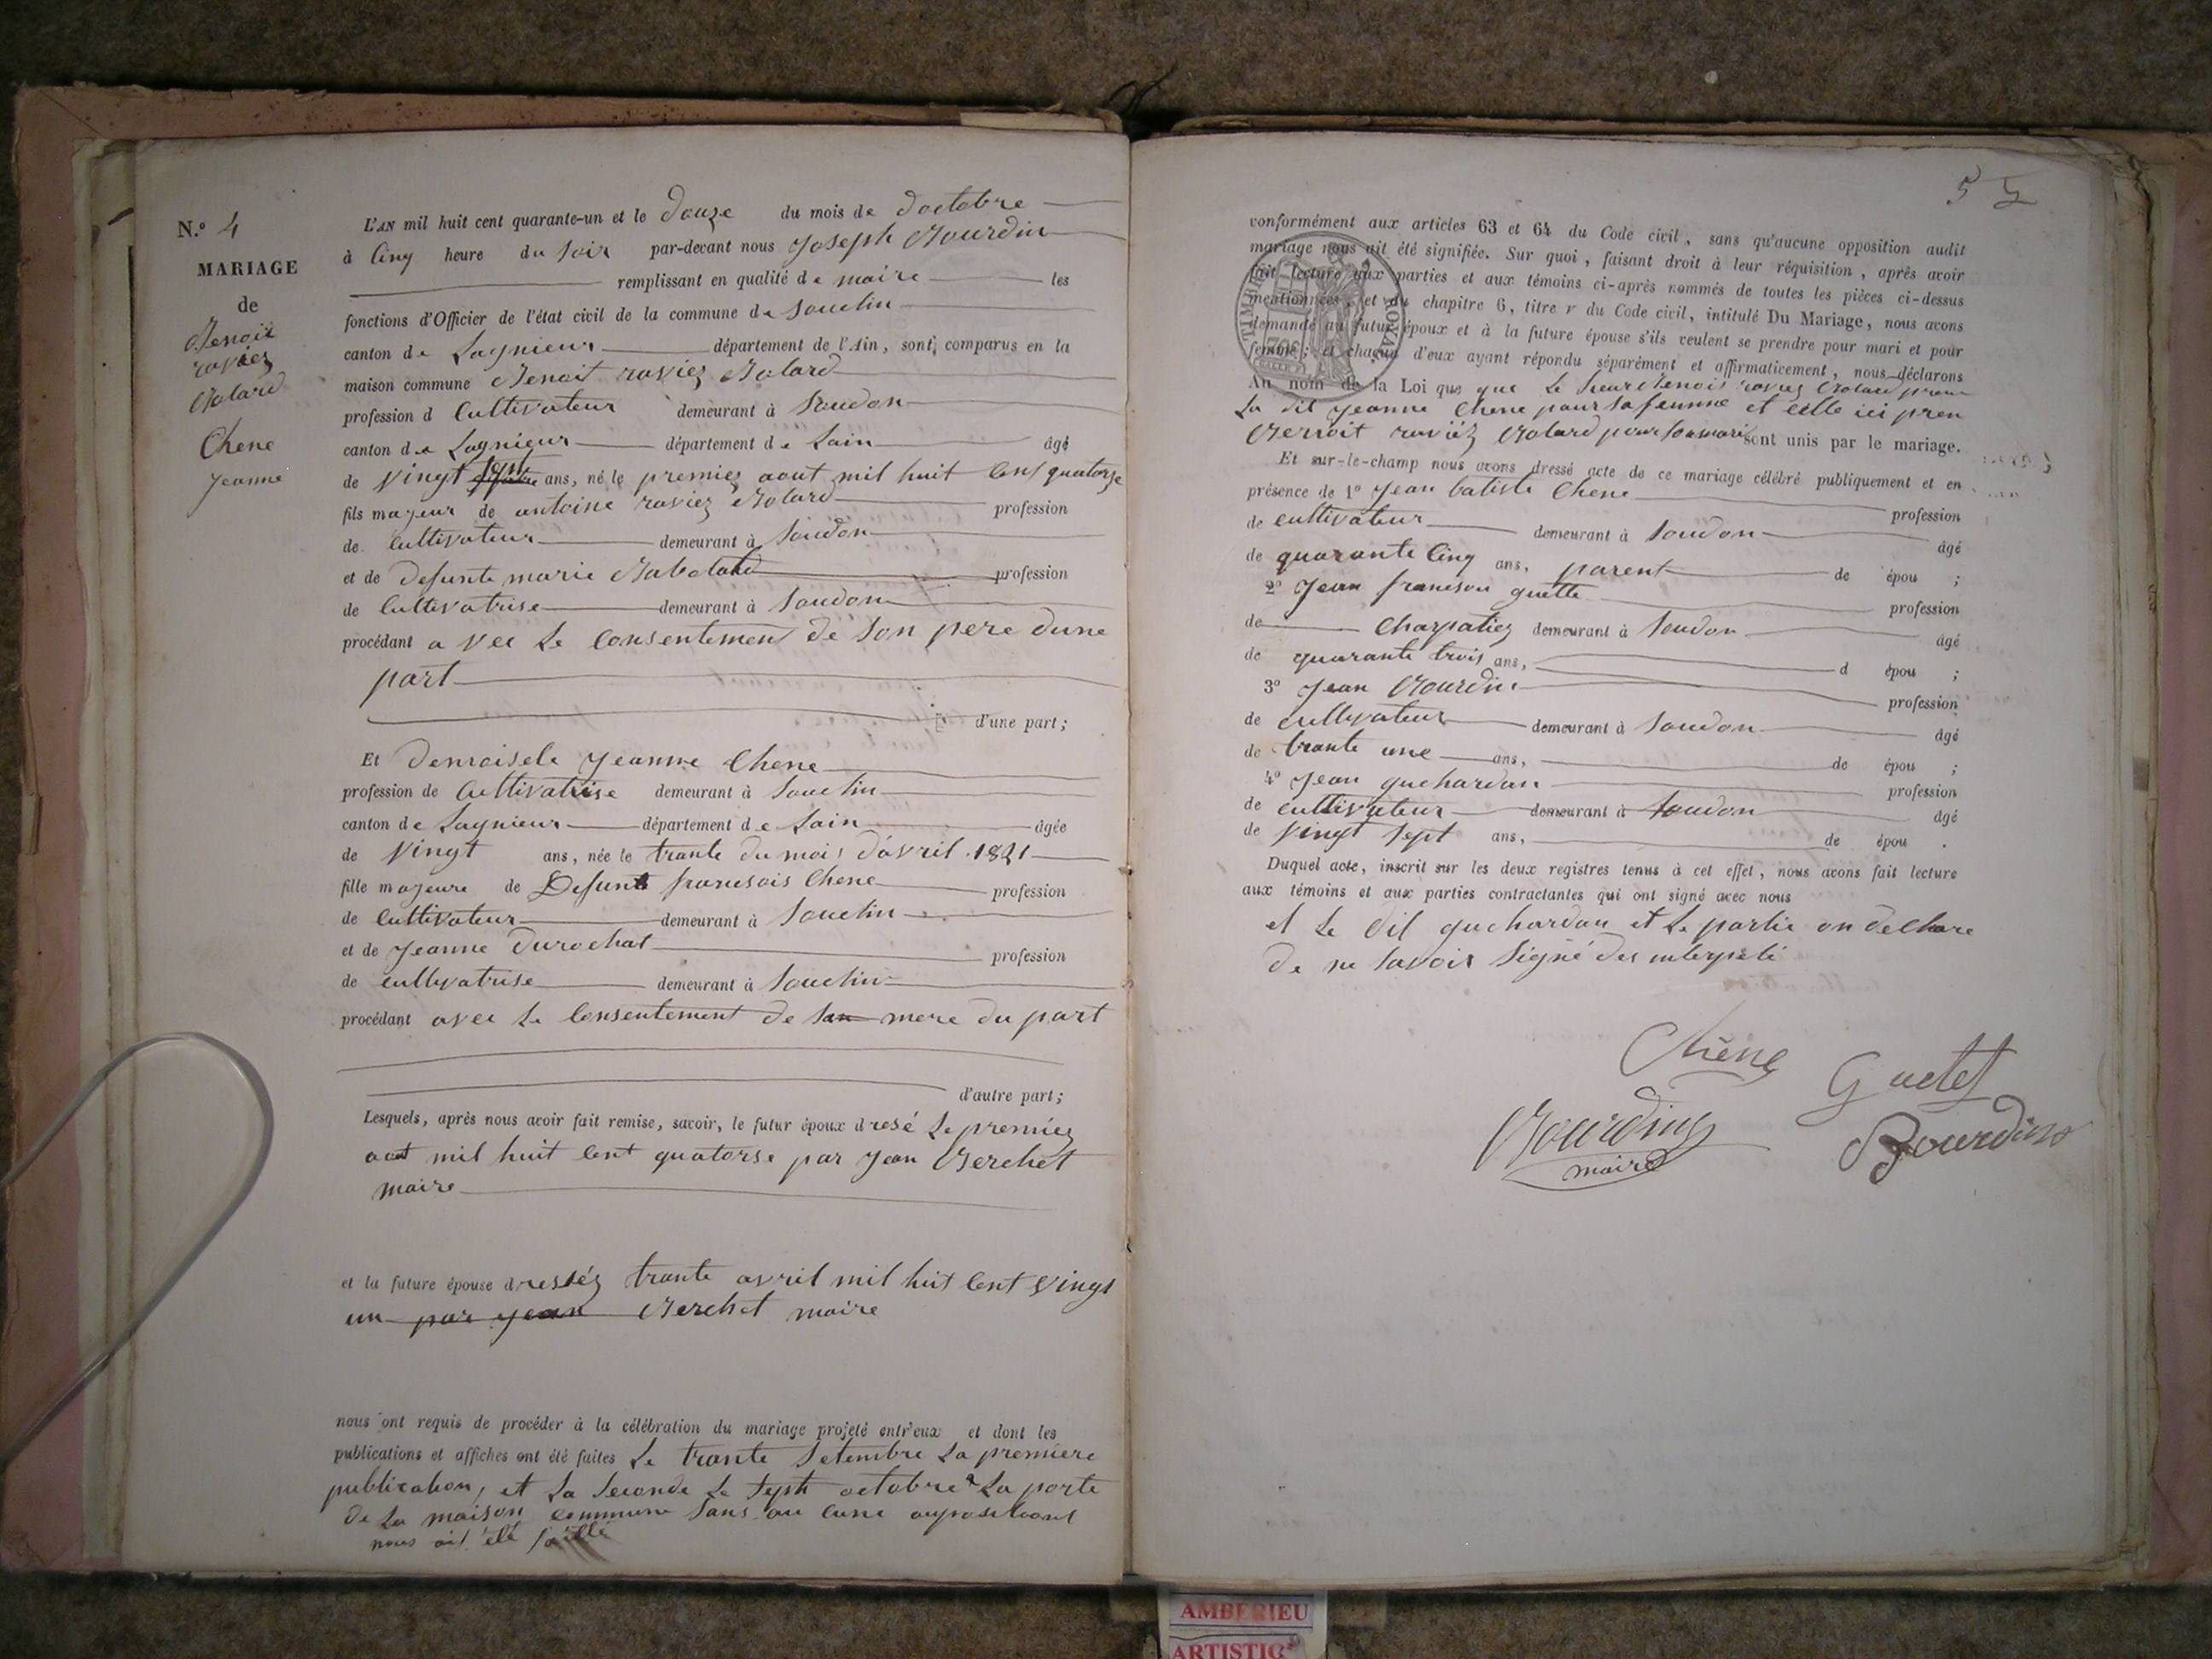 N.° 4
MARIAGE
de
Benoit
raviez
Bolard
Chene
Jeanne
L'AN mil huit cent quarante-un et le douze du mois de doctobre
à cinq heure du soir par-devant nous Joseph Bourdin
remplissant en qualité de maire les
fonctions d'Officier de l'état civil de la commune de Souclin
canton de Lagnieur département de l'Ain, sont comparus en la
maison commune Benoit raviez Bolard
profession d Cultivateur demeurant à Soudon
canton de Lagnieur département de Lain âgé
de vingt sept ans, né le premier aout mil huit cent quatorze
fils majeur de antoine raviez Bolard profession
de cultivateur demeurant à Soudon
et de defunte marie profession
de Cultivatrise demeurant à Soudon
procédant avec le Consentement de son pere dune
part
d'une part;
Et demoisele Jeanne Chene
profession de Cultivatrise demeurant à Souclin
canton de Lagnieur département de Lain âgée
de vingt ans, née le trante du mois davril 1821
fille majeure de Defunt fransois Chene profession
de cultivateur demeurant à Souclin
et de Jeanne Durochat profession
de cultivatrise demeurant à Souclin
procédant avec le Consentement de san mere du part
d'autre part;
Lesquels, après nous avoir fait remise, savoir, le futur époux dresé le premiez
aout mil huit cent quatorse par Jean Berchet
maire
et la future épouse dresséz trante avril mil huit cent vingt
un par Jean Berchet maire
nous ont requis de procéder à la célébration du mariage projeté entr'eux et dont les
publications et affiches ont été faites le trante setembre la premiere
publication, et la seconde le septt octobre a la porte
de la maison commune sans au cune
nous ait été
5
conformément aux articles 63 et 64 du Code civil, sans qu'aucune opposition audit
mariage nous ait été signifiée. Sur quoi, faisant droit à leur réquisition, après avoir
fait lecture aux parties et aux témoins ci-après nommés de toutes les pièces ci-dessus
mentionnées, et du chapitre 6, titre v du Code civil, intitulé Du Mariage, nous avons
demandé au futur époux et à la future épouse s'ils veulent se prendre pour mari et pour
femme; et chacun d'eux ayant répondu séparément et affirmativement, nous déclarons
TIMBRE ROYAL
Au nom de la Loi que que le sieur Benoit raviez Bolard pren
la dit Jeanne Chene pour sa femme et celle ici pren
Benoit raviéz Bolard pour son mari sont unis par le mariage.
Et sur-le-champ nous avons dressé acte de ce mariage célébré publiquement et en
présence de 1° Jean batiste Chene profession
de cultivateur demeurant à Soudon âgé
de quarante cinq ans, parent de épou ;
2° Jean fransou guette profession
de Charpatiez demeurant à Soudon âgé
de quarante trois ans, d épou ;
3° Jean Bourdin profession
de cultivateur demeurant à Soudon âgé
de trante une ans, de épou ;
4° Jean guchardan profession
de cultivateur demeurant à Soudon âgé
de vingt sept ans, de épou .
Duquel acte, inscrit sur les deux registres tenus à cet effet, nous avons fait lecture
aux témoins et aux parties contractantes qui ont signé avec nous
et le dit guchardan et le partie on declare
de ne savoir signé
Chêne
Guetet
Bourdin
maire
Bourdin
AMBERIEU
ARTISTIC